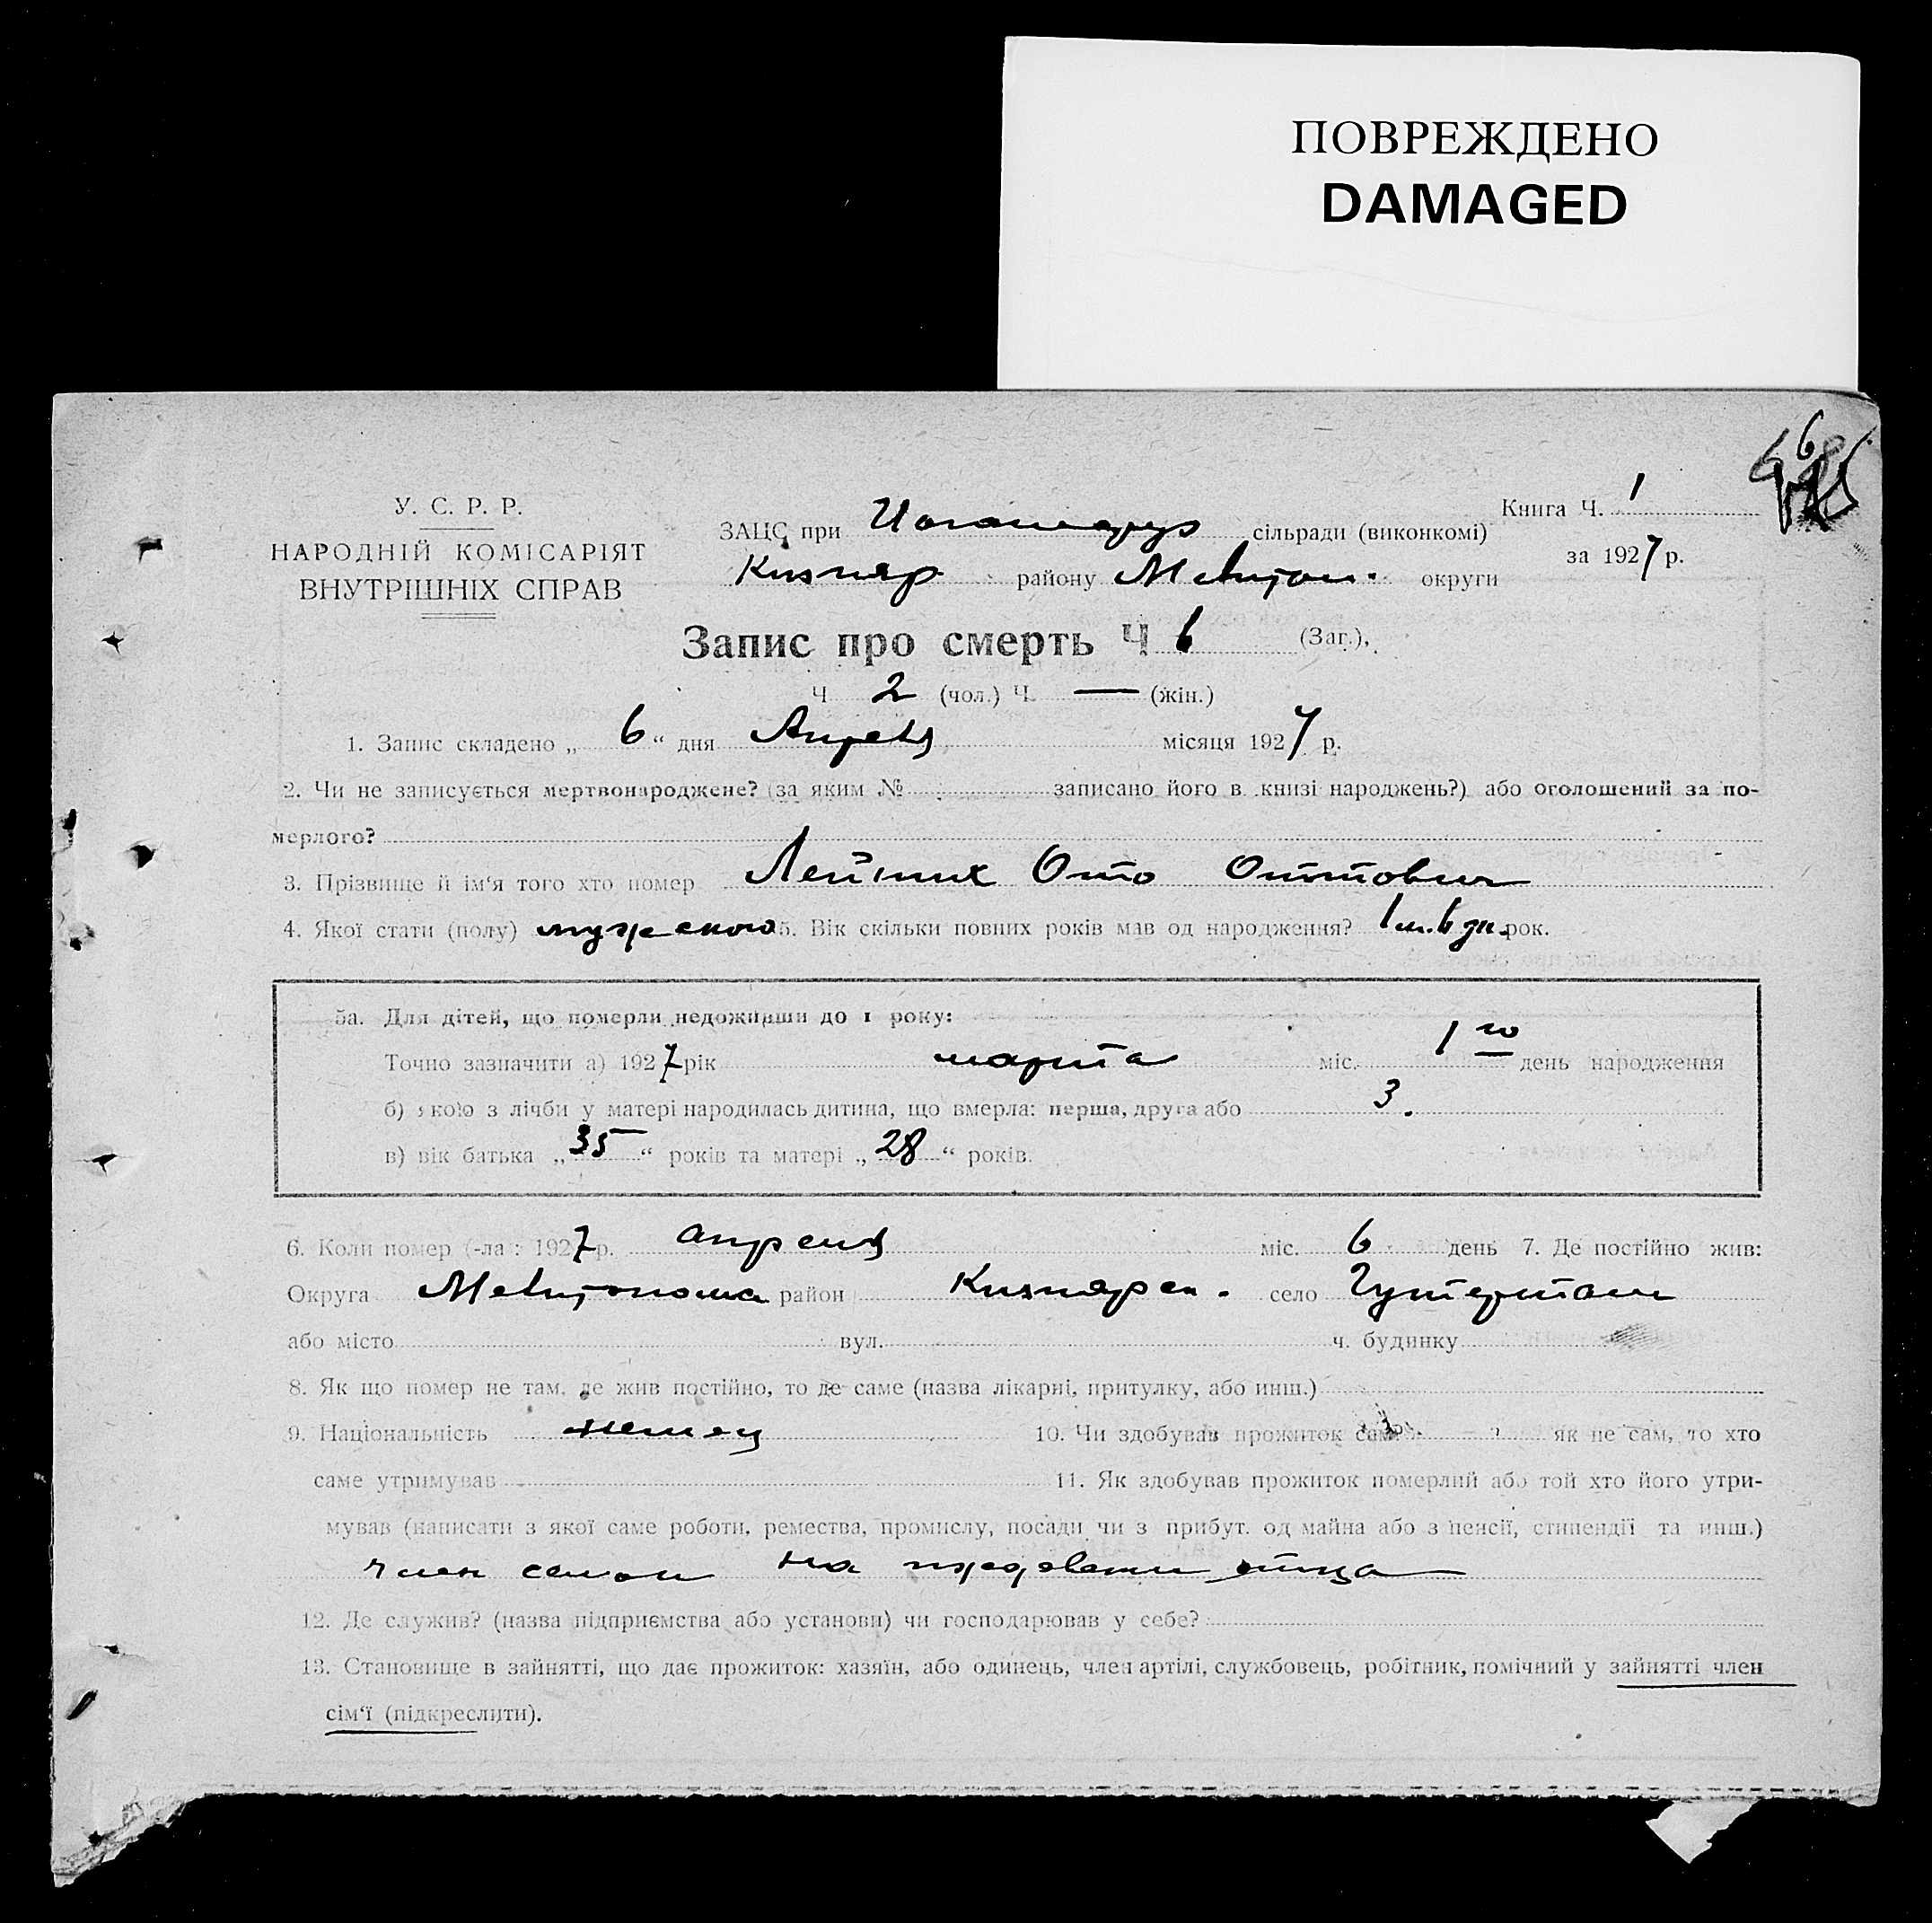 ПОВРЕЖДЕНО
DAMAGED
У. С. Р. Р.
НАРОДНІЙ КОМІСАРІЯТ
ВНУТРІШНІХ СПРАВ
Книга Ч. 1
за 1927 р.
ЗАЦС при сільради (виконкомі)
району округи
Запис про смерть Ч 6 (Заг.),
Ч 2 (чол.) Ч. — (жін.)
1. Запис складено „ 6 “ дня Апреля місяця 1927 р.
2. Чи не записується мертвонароджене? (за яким № записано його в книзі народжень?) або оголошений за по-
мерлого?
3. Прізвище й ім'я того хто помер Отто Оттович
4. Якої стати (полу) мужского 5. Вік скільки повних років мав од народження? 1 м. 6 дн. рок.
5а. Для дітей, що померли недоживши до 1 року:
Точно зазначити а) 1927 рік марта міс. 1го день народження
б) якою з лічби у матері народилась дитина, що вмерла: перша, друга або 3.
в) вік батька „ 35 “ років та матері „ 28 “ років.
6. Коли помер (-ла): 1927 р. апреля міс. 6 день 7. Де постійно жив:
Округа Мелитополь район село Гутерталь
або місто вул. ч. будинку
8. Як що помер не там, де жив постійно, то де саме (назва лікарні, притулку, або инш.)
9. Національність немец 10. Чи здобував прожиток сам як не сам, то хто
саме утримував 11. Як здобував прожиток померлий або той хто його утри-
мував (написати з якої саме роботи, ремества, промислу, посади чи з прибут. од майна або з пенсії, стипендії та инш.)
член семьи на отца
12. Де служив? (назва підприємства або установи) чи господарював у себе?
13. Становище в зайнятті, що дає прожиток: хазяїн, або одинець, член артілі, службовець, робітник, помічний у зайнятті член
сім'ї (підкреслити).